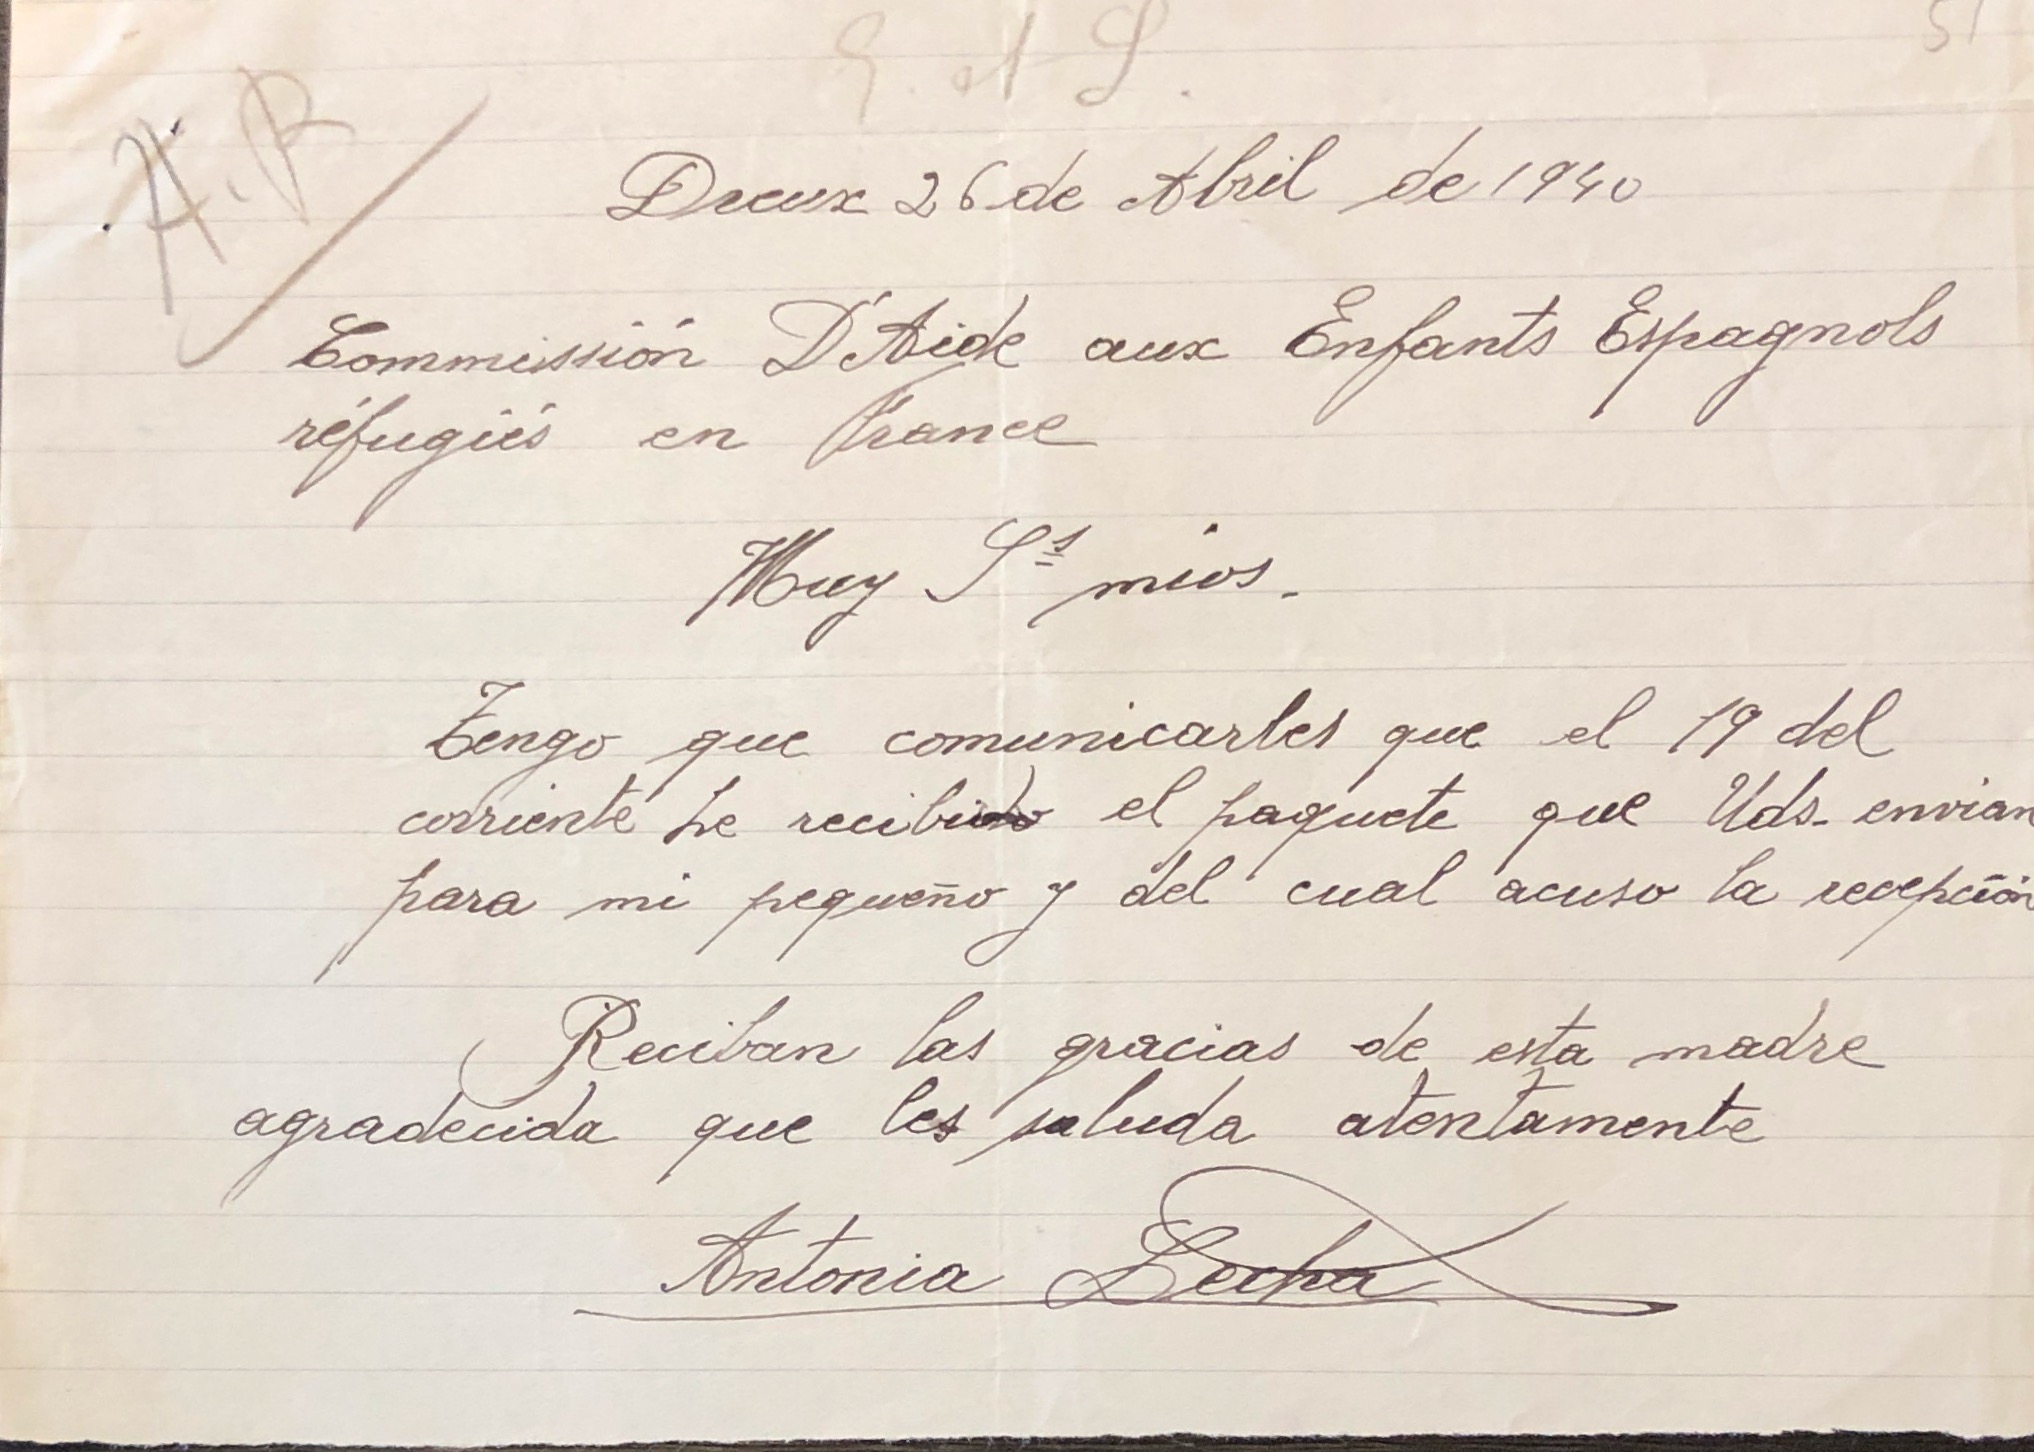 51
A.R
Dreux 26 de Abril de 1940
Commissión D'Aide aux Enfants Espagnols
réfugiés en France
Muy Ss mios.
Tengo que comunicarles que el 19 del
corriente he recibido el paquete que Uds. envian
para mi pequeño y del cual acuso la recepción
Reciban las gracias de esta madre
agradecida que les saluda atentamente
Antonia Lecha